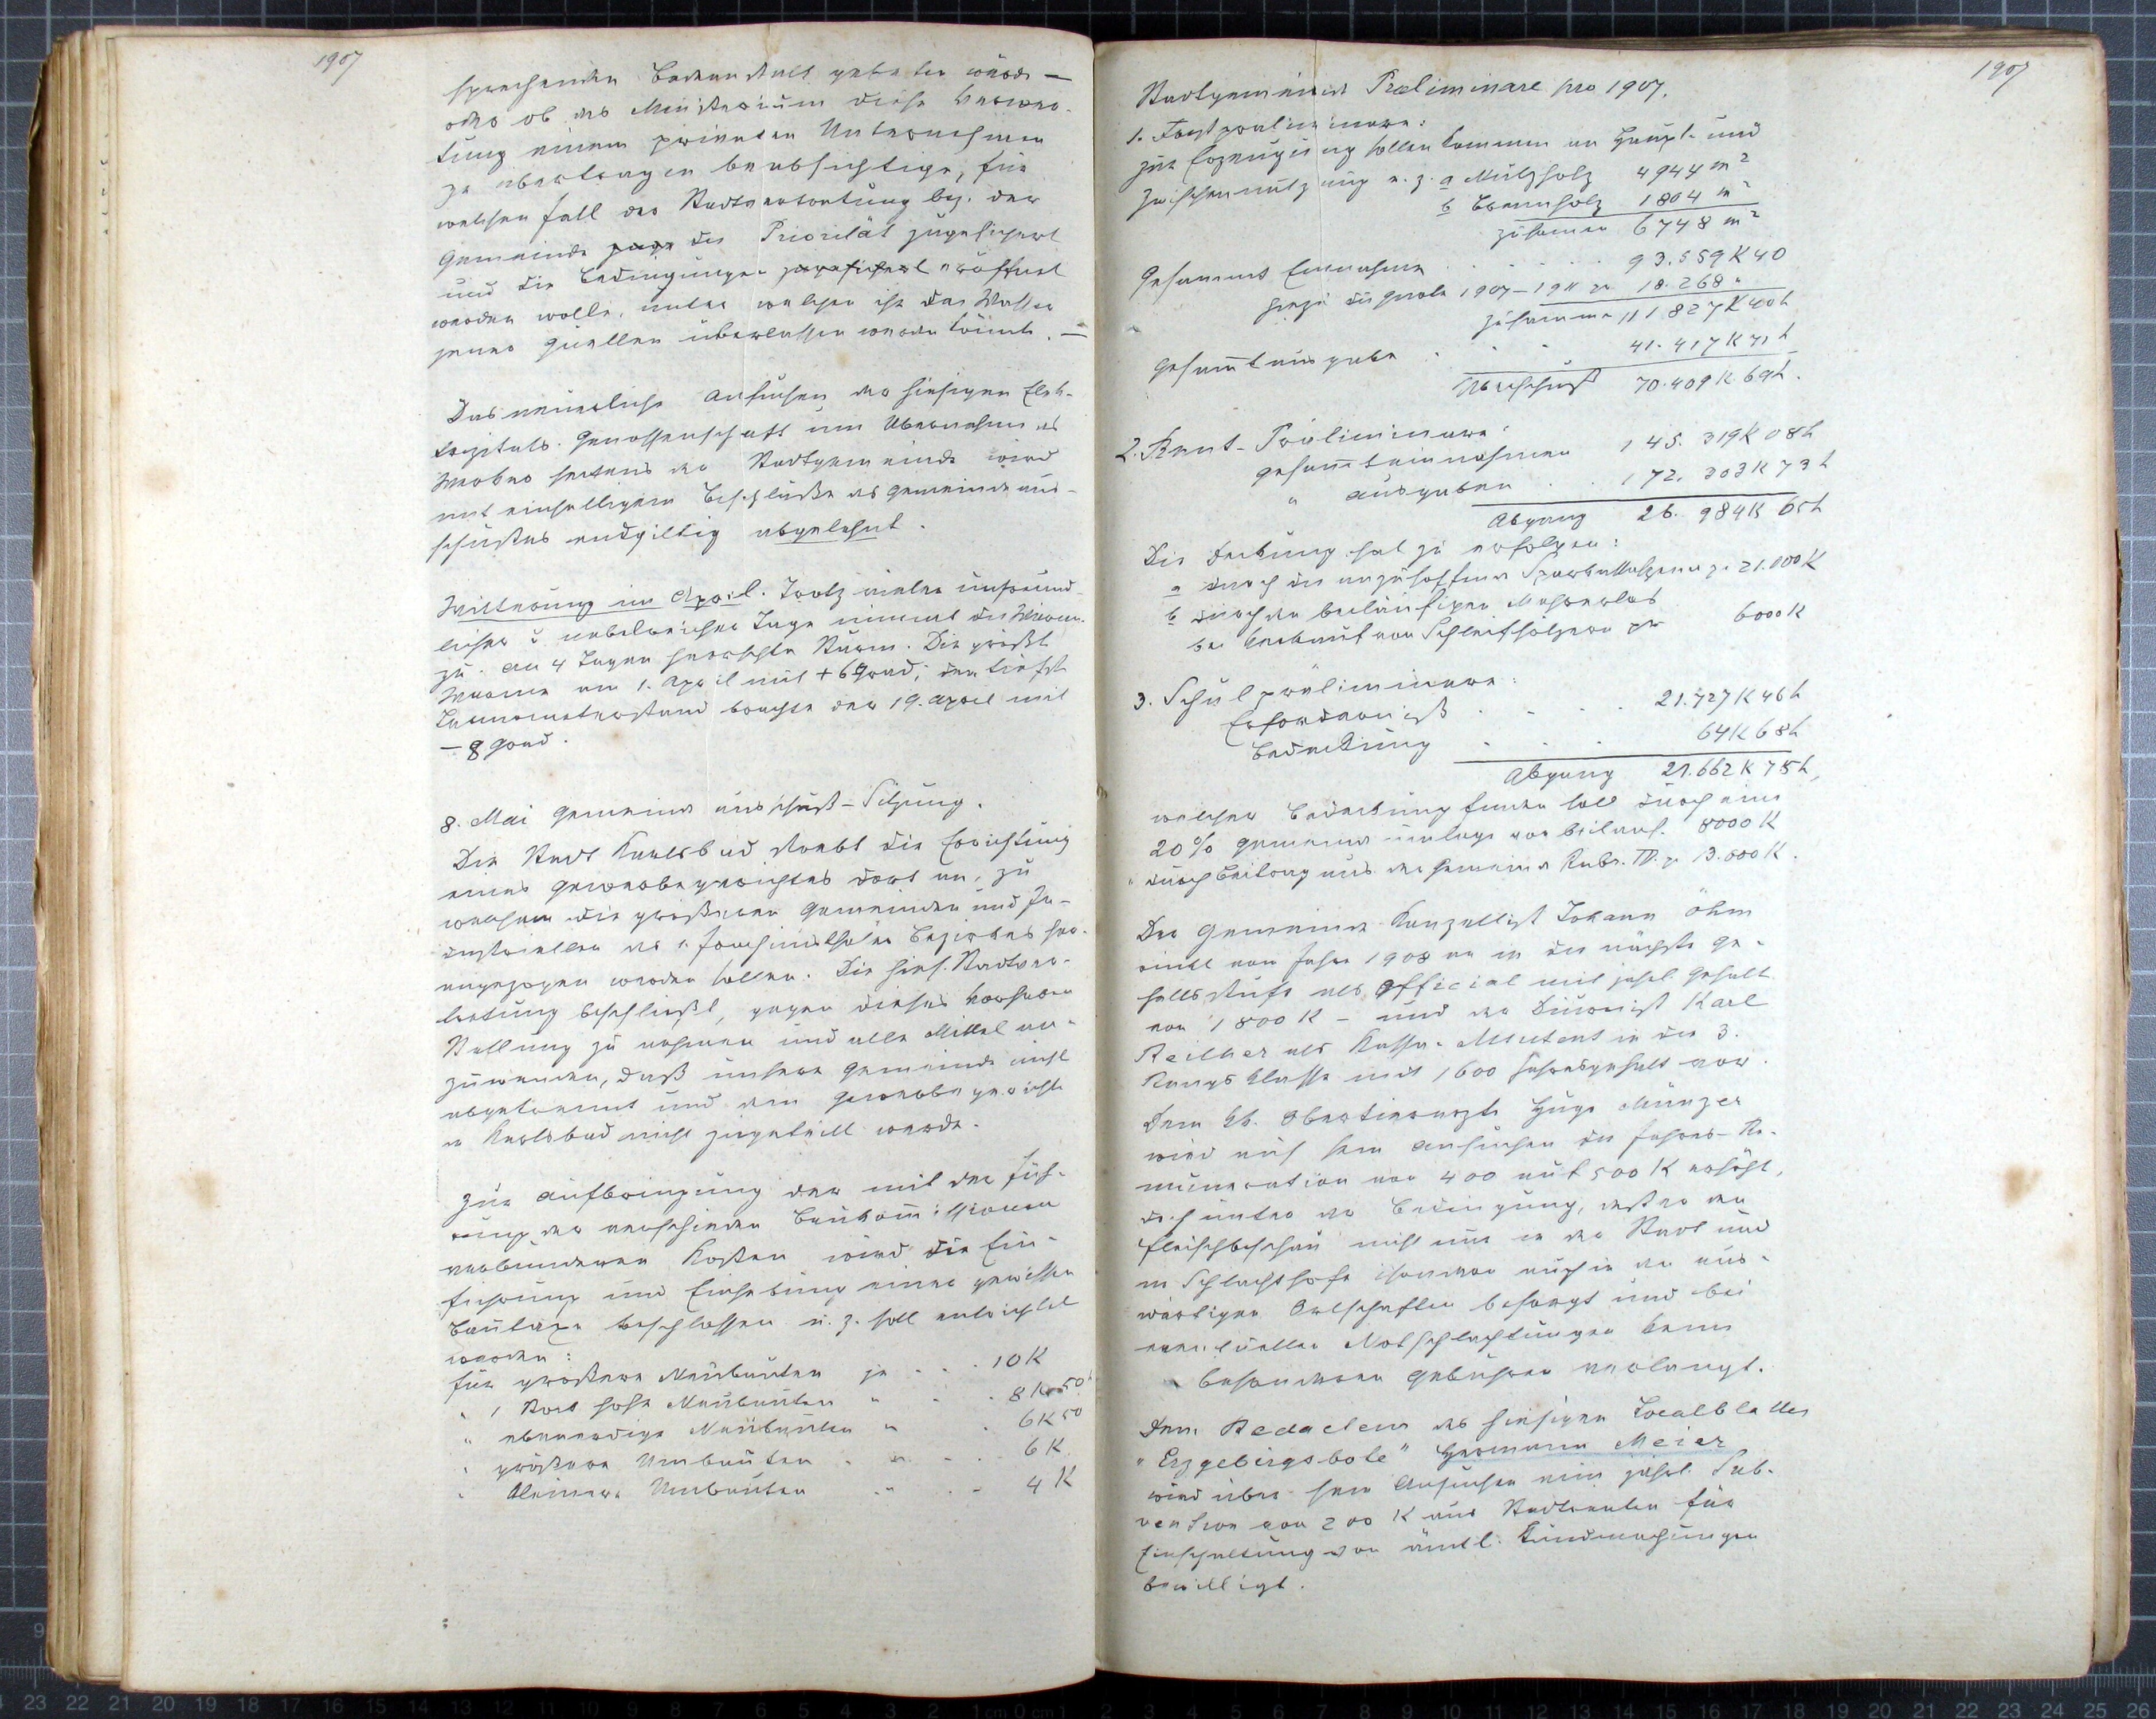 1907
sprechenden Badeanstalt gebeten werde —
oder ob das Ministerium diese Verwer-
tung einem privaten Unternehmen
zu übertragen beabsichtige, für
welchen Fall der Stadtvertretung bez. der
Gemeinde die Priorität zugesichert
und die Bedingungen eröffnet
werden wolle, unter welchen ihr das Wasser
jener Quellen überlassen werden könnte. —
Das neuerliche Ansuchen der hiesigen Elek-
trizitäts-Genossenschaft um Übernahme des
Werkes seitens der Stadtgemeinde wird
mit einhelligem Beschluße des Gemeindeaus-
schußes endgiltig abgelehnt.
Witterung im April. Trotz vieler unfreund-
licher u nebelreicher Tage nimmt die Wärme
zu. An 4 Tagen herrschte Sturm. Die größte
Wärme am 1. April mit + 6 Grad; den tiefst
Termometerstand brachte der 19. April mit
— 8 Grad.
8. Mai Gemeindeausschuß-Sitzung.
Die Stadt Karlsbad strebt die Errichtung
eines Gewerbegerichtes dort an, zu
welchem die größeren Gemeinden und In-
dustriellen des Joachimsthaler Bezirkes her-
angezogen werden sollen. Die hies. Stadtver-
tretung beschließt, gegen dieses Vorhaben
Stellung zu nehmen und alle Mittel an-
zuwenden, daß unsere Gemeinde nicht
abgetrennt und dem Gewerbegerichte
in Karlsbad nicht zugeteilt werde.
Zur Aufbringung der mit der Füh-
rung der verschieden Baukom̅issionen
verbundenen Kosten wird die Ein-
führung und Einhebung einer gewissen
Bautaxe beschlossen u. z. soll entrichtet
werden:
für größere Neubauten je . . . 10 K
" 1 Stock hohe Neubauten " . . 8 K 50
" ebenerdige Neubauten " . 6 K 50
" größere Umbauten . " . . . 6 K
" kleinere Umbauten " . . - 4 K
1907
Stadtgemeinde Præliminare pro 1907.
1. Forstpräliminare:
zur Erzeugung sollen kommen an Haupt- und
Zwischennutzung u. z. a Nutzholz 4944 m²
b Brennholz 1804 m²
zusamen 6748 m²
Gesammt Einnahme . . . . . 93.559 K 40
hiezu die Quote 1907–1911 per 18.268 "
zusammen 111827 K 40 h
Gesam̅tausgabe . . . 41.417 K 71 h
Überschuß 70.409 K 69 h.
2. Rent-Präliminare:
Gesam̅teinnahmen 145.319 K 08 h
" Ausgaben . . 172.303 K 73 h
Abgang 26.984 K 65 h
Die Deckung hat zu erfolgen:
a durch die anzuhoffende Sparkassa 21.000 K
b durch den beiläufigen Mehrerlös
bei Verkauf von Schleifhölzern per 6000 K
3. Schulpräliminare:
Erfordernis . . . . 21.727 K 46 h
Bedeckung . . . 64 K 68 h
Abgang 21.662 K 78 h,
welcher Bedeckung finden soll durch eine
20 % Gemeindeumlage von beiläuf. 8000 K
durch Beitrag aus der Gemeinde Rubr. IV. p. 13.600 K.
Der Gemeinde Kanzellist Johann Öhm
rückt vom Jahre 1908 an in die nächste Ge-
haltsstufe als Official mit jährl. Gehalt
von 1800 K – und der Diurnist Karl
Reither als Kassa-Adjutant in die 3.
Rangsklasse mit 1600 Jahresgehalt vor.
Dem kk. Obertierarzte Hugo Münzer
wird auf sein Ansuchen die Jahres-Re-
muneration von 400 auf 500 K erhöht,
doch unter der Bedingung, daß er die
Fleischbeschau nicht nur in der Stadt und
im Schlachthofe sondern auch in den aus-
wärtigen Ortschaften besorgt und bei
eventüellen Notschlachtungen keine
besonderen Gebühren verlangt.
Dem Redacteur des hiesigen Localblattes
"Erzgebirgsbote" Hermann Meier
wird über sein Ansuchen eine jährl. Sub-
vention von 200 K aus Stadtrenten für
Einschaltung von ämtl. Kundmachungen
bewilligt.